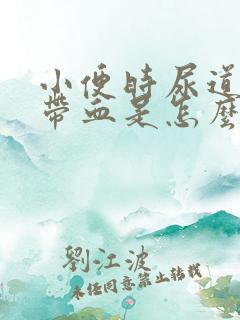 小便時尿道
帶血是怎麼
劉江波
未經同意禁止轉載